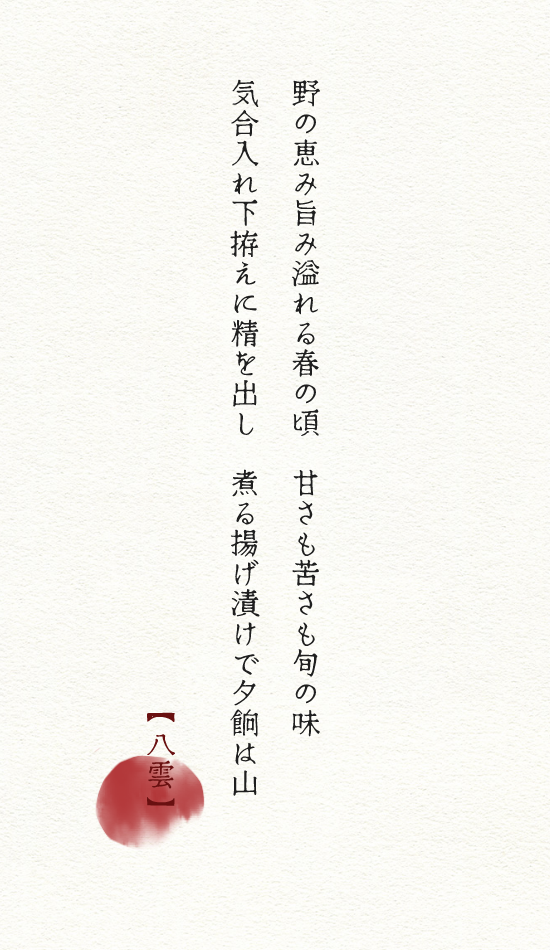 野の恵み旨み溢れる春の頃　甘さも苦さも旬の味
気合入れ下拵えに精を出し　煮る揚げ漬けで夕餉は山
【八雲】